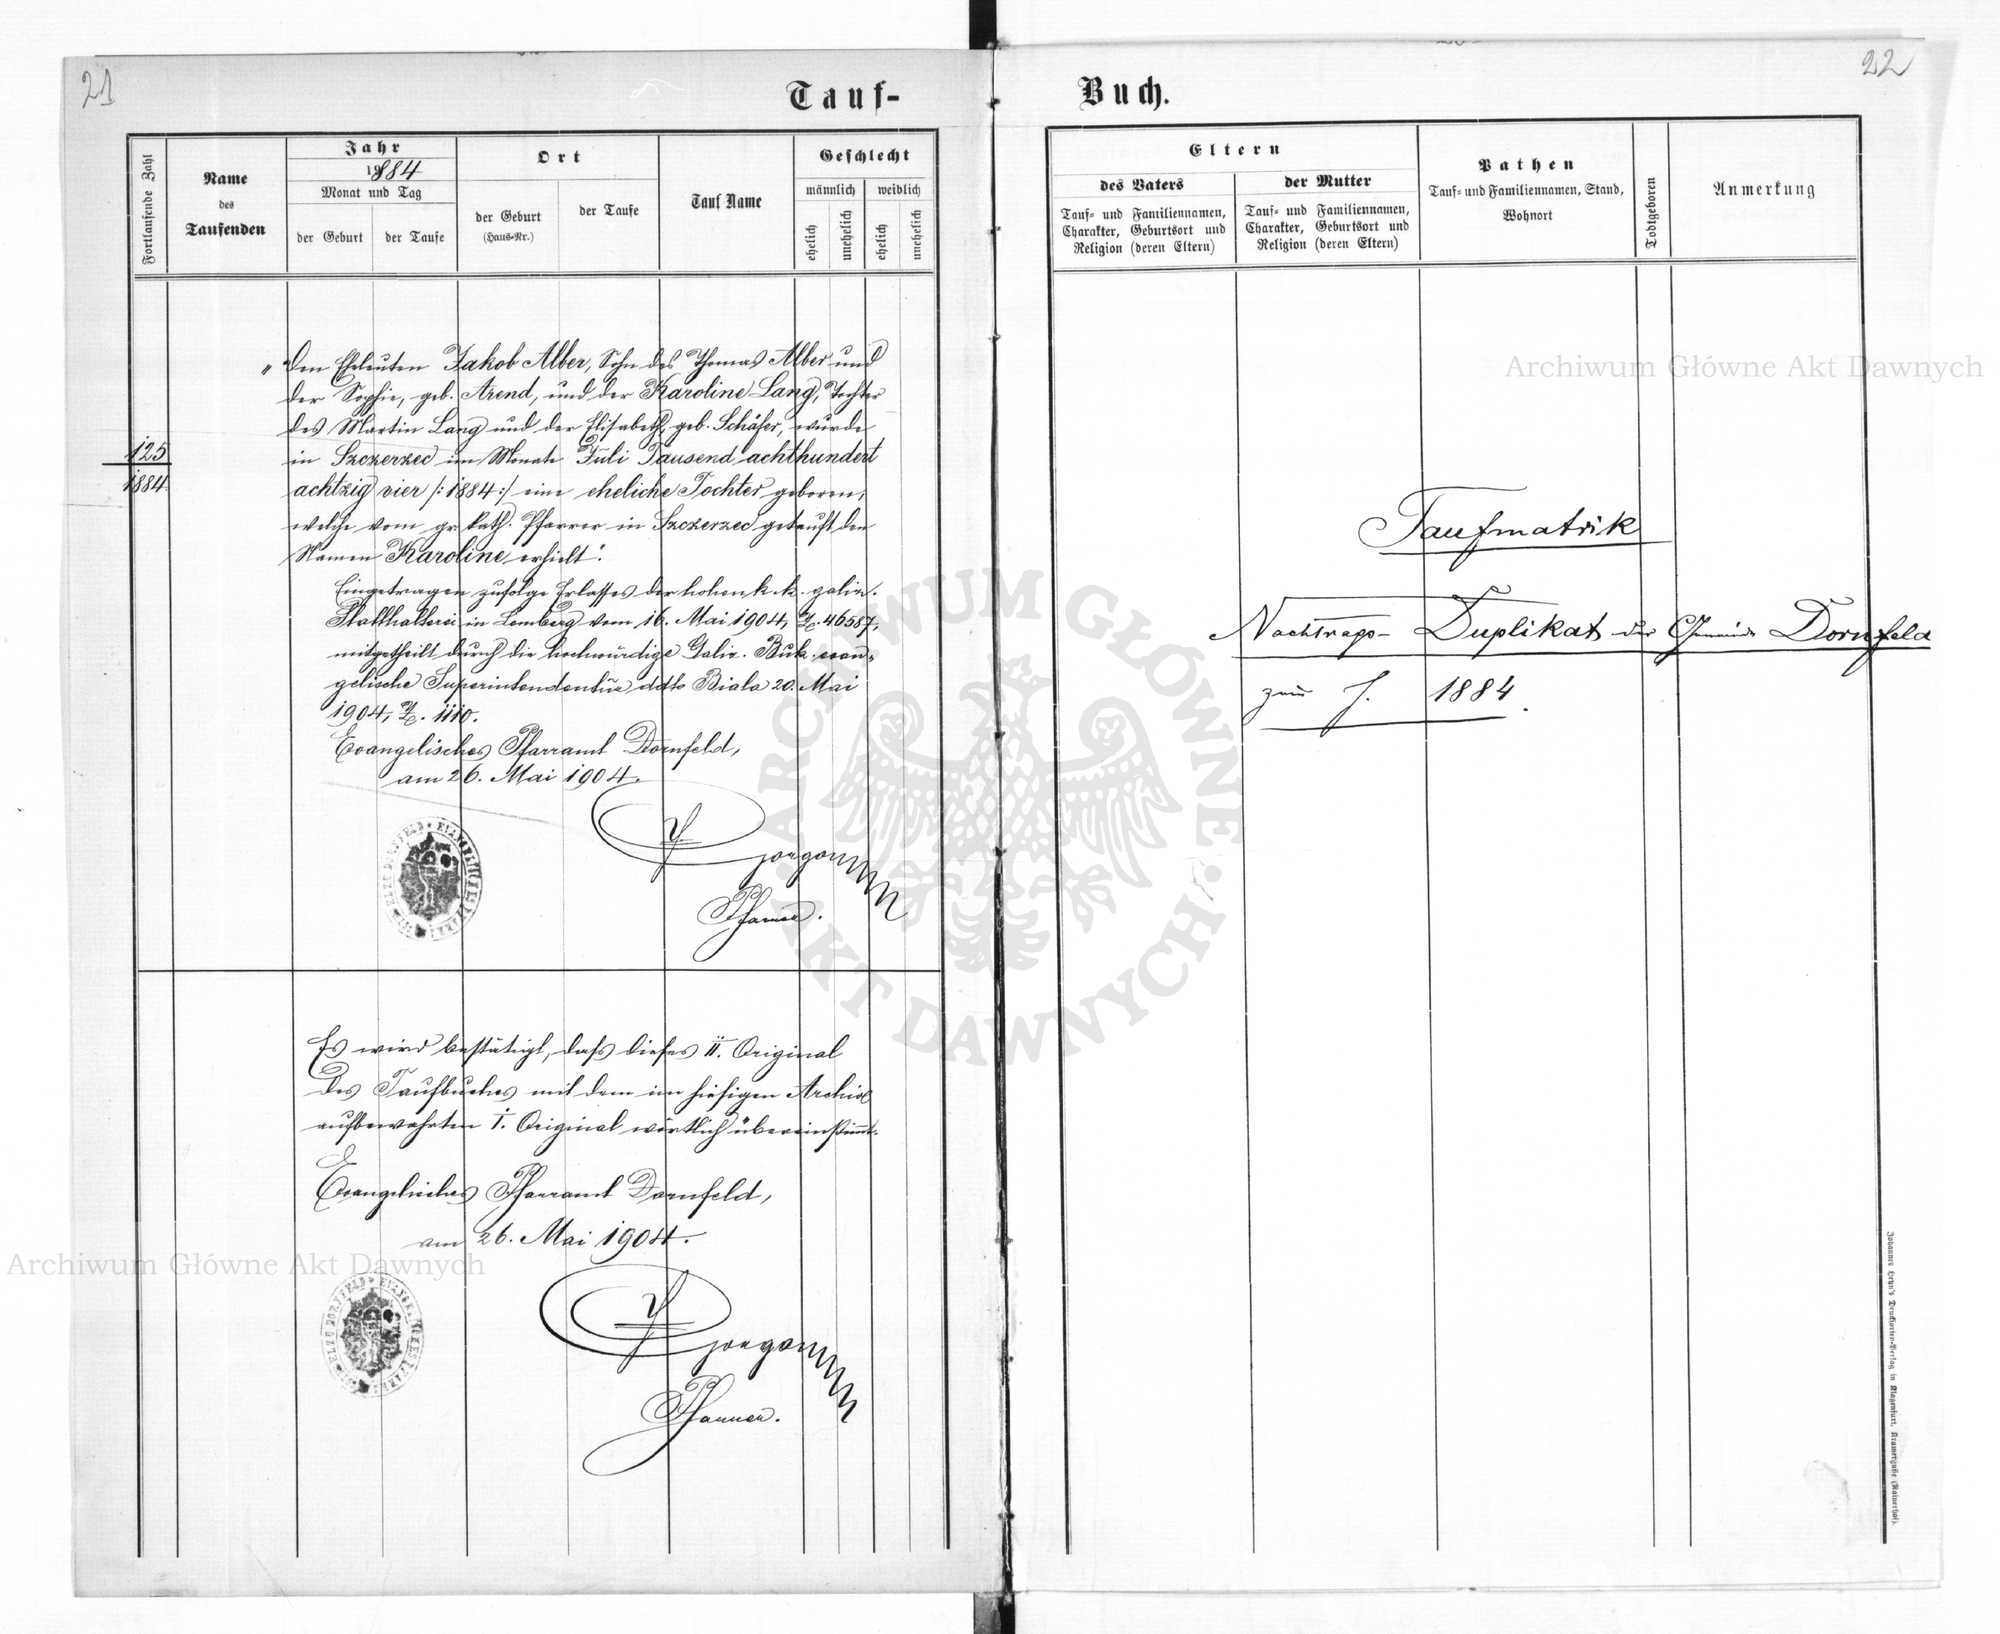 21
22
Tauf-
Buch.
Fortlaufende Zahl
Name
des
Taufenden
Jahr
1884
Monat und Tag
der Geburt
der Taufe
Ort
der Geburt
(Haus-Nr.)
der Taufe
Tauf Name
Geschlecht
männlich
weiblich
ehelich
unehelich
ehelich
unehelich
"Den Eheleuten Jakob Alber, Sohn des Thomas Alber und
der Sophie, geb. Arend, und der Karoline Lang, Tochter
des Martin Lang und der Elisabeth, geb. Schäfer, wurde
in Szczerzec im Monate Juli Tausend achthundert
achtzig vier /:1884:/ eine eheliche Tochter geboren,
welche vom gr. kath. Pfarrer in Szczerzec getauft den
Namen Karoline erhielt".
125
1884
Eingetragen zufolge Erlasses der hohen k. k. galiz.
Statthalterei in Lemberg vom 16. Mai 1904, Z. 46587,
mitgetheilt durch die hochwürdige Galiz. Buk. evan-
gelische Superintendentur ddto Biala 20. Mai
1904, Z. 1110.
Evangelisches Pfarramt Dornfeld,
am 26. Mai 1904.
Pfarrer.
Es wird bestätigt, daß dieses II. Original
des Taufbuches mit dem im hiesigen Archiv
aufbewahrten I. Original wörtlich übereinstimmt.
Evangelisches Pfarramt Dornfeld,
am 26. Mai 1904.
Pfarrer.
Eltern
des Vaters
Tauf- und Familiennamen,
Charakter, Geburtsort und
Religion (deren Eltern)
der Mutter
Tauf- und Familiennamen,
Charakter, Geburtsort und
Religion (deren Eltern)
Pathen
Tauf- und Familiennamen, Stand,
Wohnort
Todtgeboren
Anmerkung
Taufmatrik
Nachtrags- Duplikat der Gemeinde Dornfeld
zum J. 1884.
Johannes Heyn's Drucksorten-Verlag in Klagenfurt, Kramergasse (Rainerhof).
Archiwum Główne Akt Dawnych
Archiwum Główne Akt Dawnych
ARCHIWUM GŁÓWNE AKT DAWNYCH